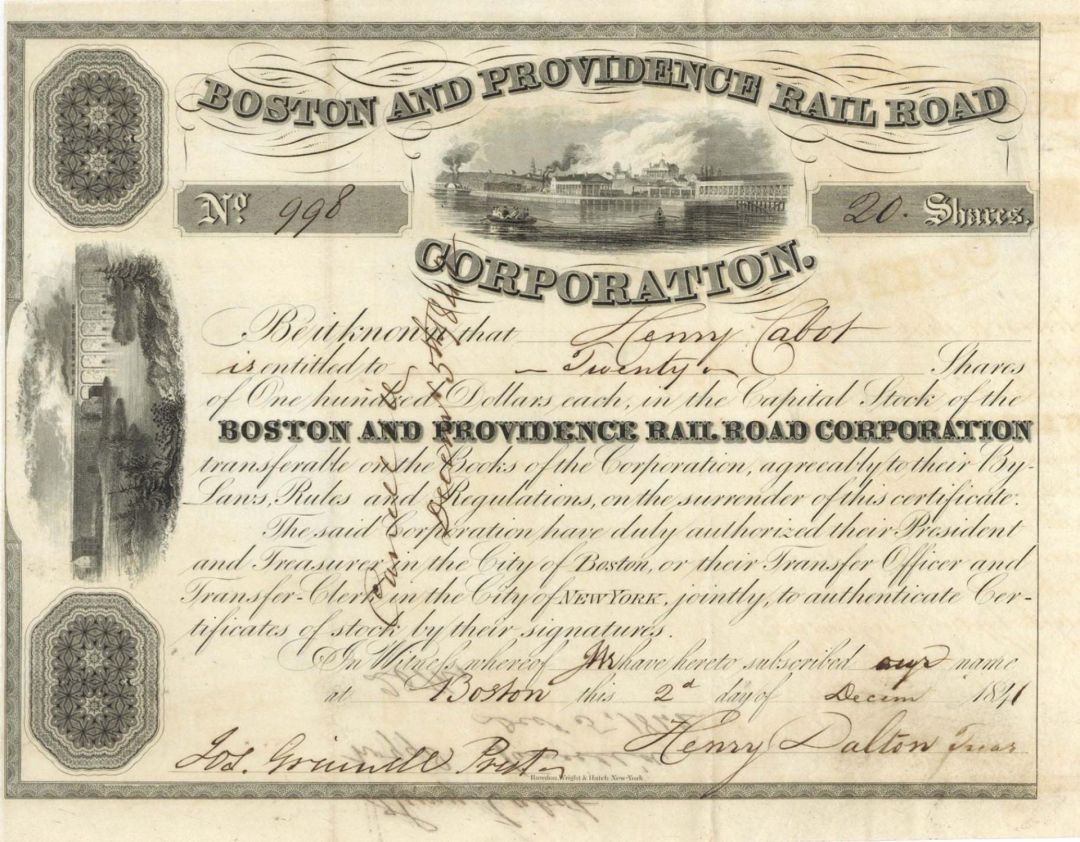 BOSTON AND PROVIDENCE RAIL ROAD
No. 998
20. Shares.
CORPORATION.
Be it known that Henry Cabot
is entitled to Twenty Shares
of One hundred Dollars each, in the Capital Stock of the
BOSTON AND PROVIDENCE RAIL ROAD CORPORATION
transferable on the Books of the Corporation, agreeably to their By-
Laws, Rules and Regulations, on the surrender of this certificate.
The said Corporation have duly authorized their President
and Treasurer in the City of Boston, or their Transfer Officer and
Transfer-Clerk in the City of NEW YORK, jointly, to authenticate Cer-
tificates of stock by their signatures.
In Witness whereof We have hereto subscribed our name
at Boston this 2d day of Decem 1841
Jos. Grinnell Prest
Henry Dalton Treas
Rawdon, Wright & Hatch New-York
Cancelled
Decem 5th 184